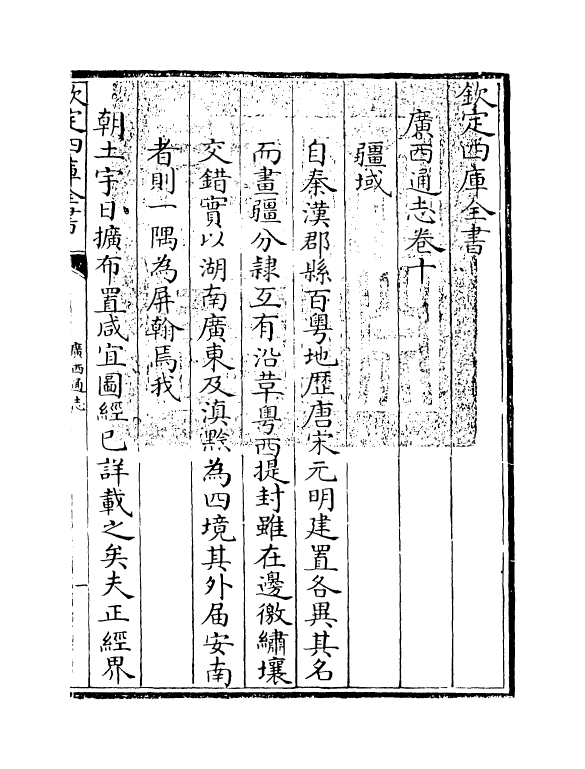 欽定四庫全書
廣西通志卷十
疆域
自秦漢郡縣百粤地歴唐宋元明建置各異其名
而畫疆分隷互有沿革粤西提封雖在邊徼繡壤
交錯實以湖南廣東及滇黔為四境其外届安南
者則一隅為屏翰焉我
朝土宇日擴布置咸宜圖經已詳載之矣夫正經界
欽定四庫全書
廣西通志
一